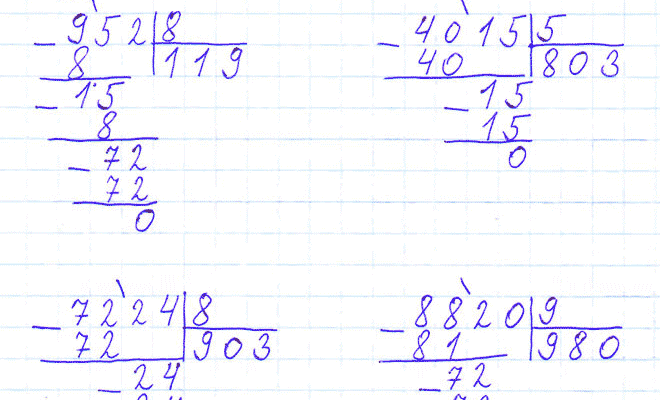 952 8
8 119
15
8
72
72
0
4015 5
40 803
15
15
0
7224 8
72 903
24
8820 9
81 980
72